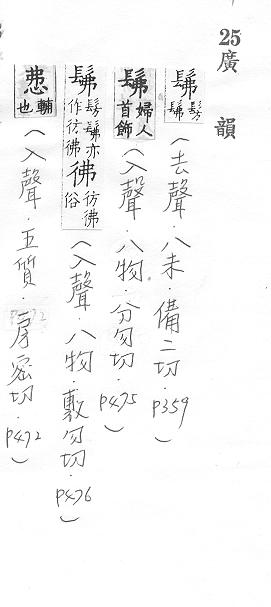 25廣韻
髴 髣髴(去聲．八未．備二切．P359)
髴 婦人首飾(入聲．八物．分勿切．P475)
髴 髣髴亦作彷彿 彿 彷彿俗(入聲．八物．敷勿切．P476)
輔也(入聲．五質．房密切．P472)